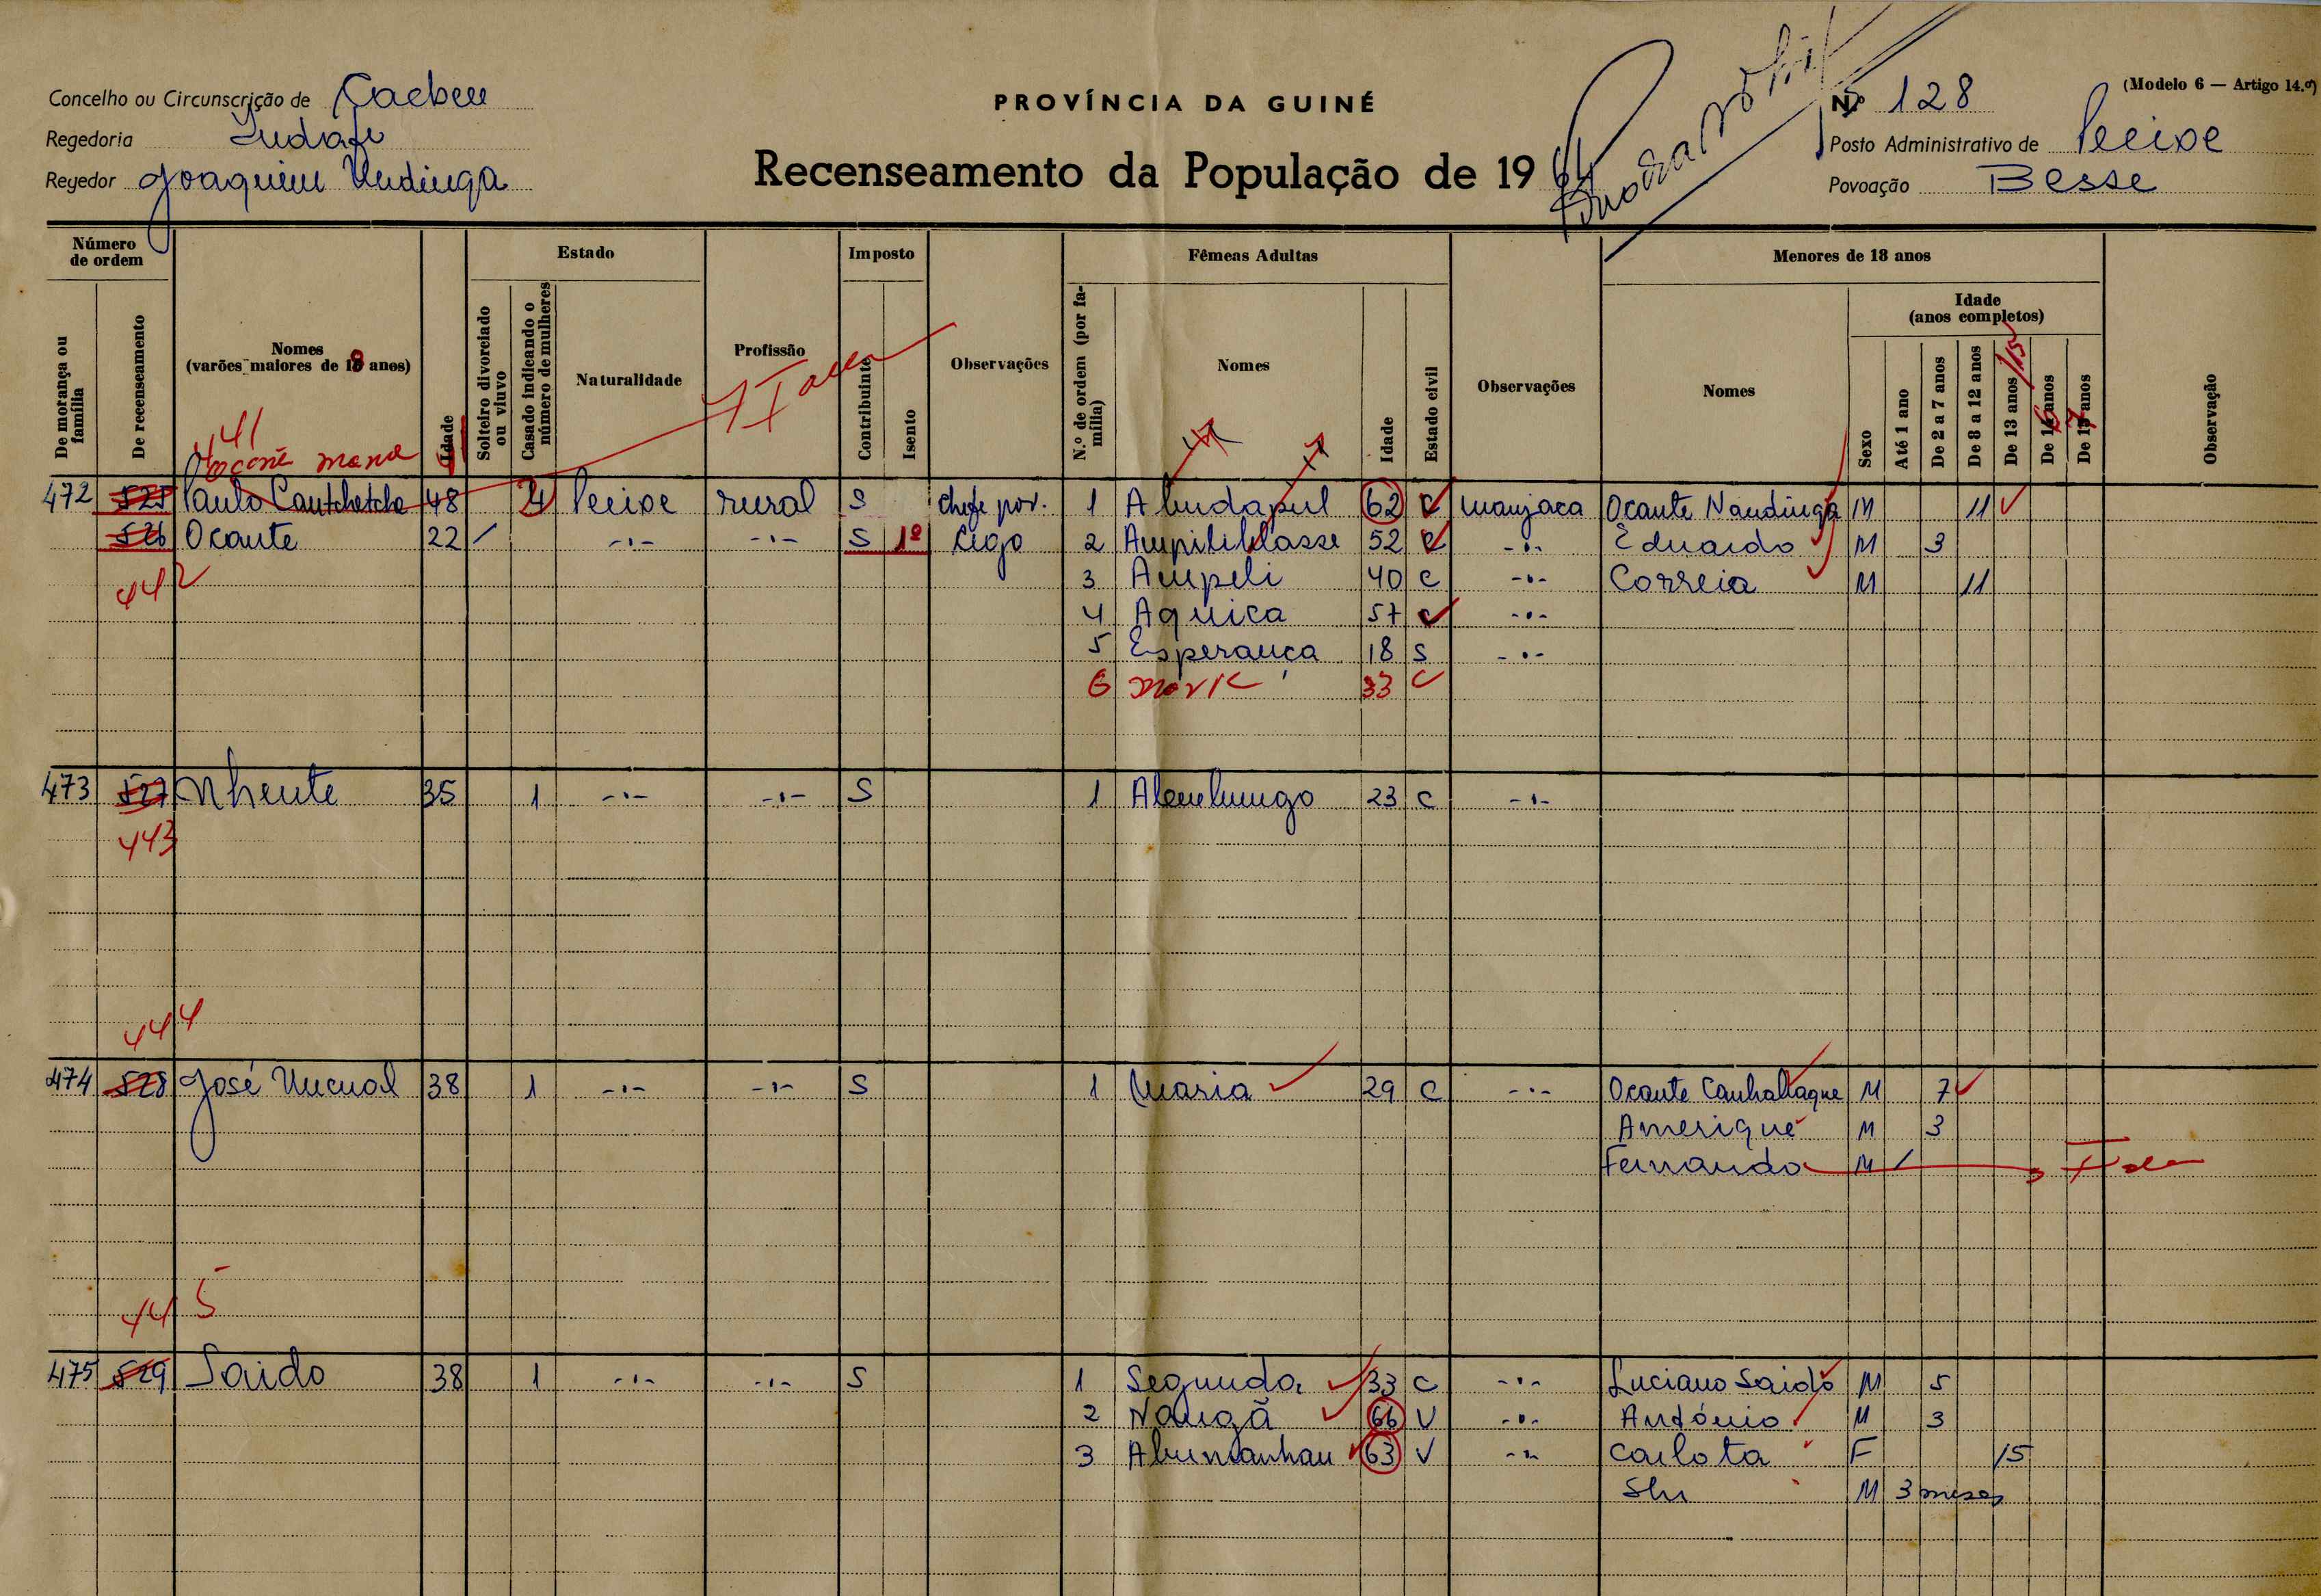 Concelho ou Circunscrição de Cacheu
PROVÍNCIA DA GUINÉ
Nº 128
(Modelo 6 — Artigo 14.º)
Regedoria
Recenseamento da População de 1964
Posto Administrativo de Pecixe
Regedor Joaquim Undinga
Povoação Besse
Número de ordem
De morança ou família
De recenseamento
Nomes (varões maiores de 18 anos)
Idade
Estado
Solteiro divorciado ou viuvo
Casado indicando o número de mulheres
Naturalidade
Profissão
Imposto
Contribuinte
Isento
Observações
Fêmeas Adultas
N.º de ordem (por família)
Nomes
Idade
Estado civil
Observações
Menores de 18 anos
Nomes
Idade (anos completos)
Sexo
Até 1 ano
De 2 a 7 anos
De 8 a 12 anos
De 13 anos /15
De 16 anos
De 17 anos
Observação
441
472 525 Paulo Cantchetche 48 4 Pecixe rural S Chefe pov. 1 Abudapul 62 C Manjaca Ocante Nandinga M 11
526 Ocante 22 / -"- -"- S 1º Cego 2 52 C -"- Eduardo M 3
442 3 Ampeli 40 C -"- Correia M 11
4 Aquica 57 C -"-
5 Esperança 18 S -"-
6 33 C
473 527 Nhente 35 1 -"- -"- S 1 23 C -"-
443
444
474 528 José Uncual 38 1 -"- -"- S 1 Maria 29 C -"- Ocante M 7
Amerique M 3
Fernando M /
445
475 529 Saido 38 1 -"- -"- S 1 Segunda 33 C -"- Luciano Saido M 5
2 Nangã 66 V -"- António M 3
3 Abumanhau 63 V -"- Carlota F 15
M 3 meses